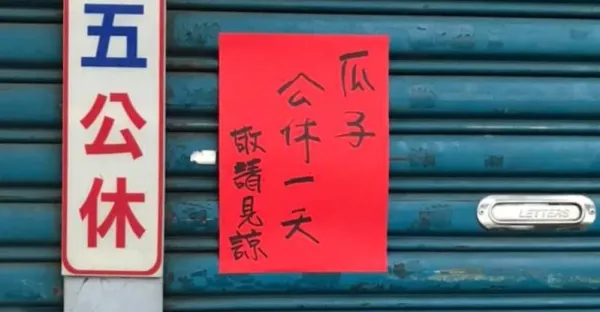 瓜子
公休一天
敬請見諒
五公休
LETTERS